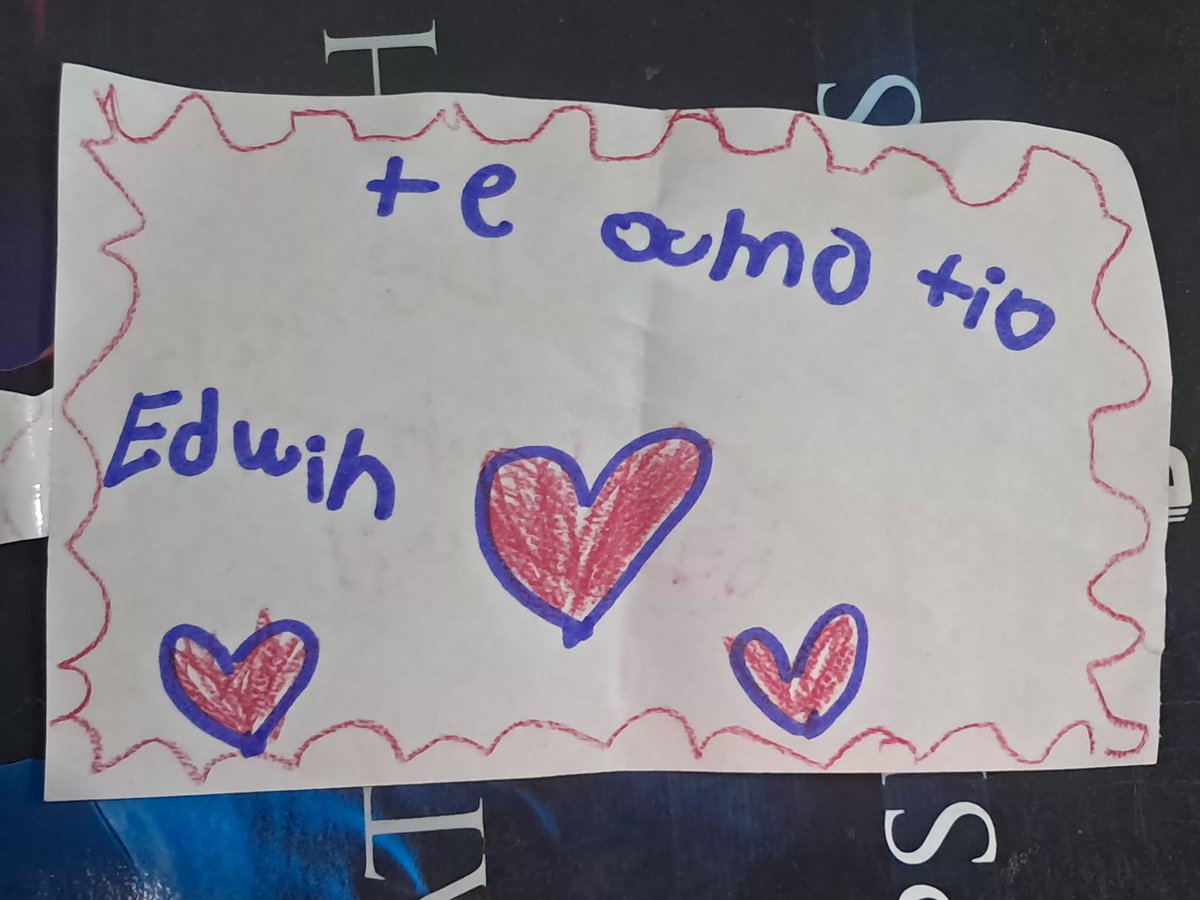 te amo tio
Edwin